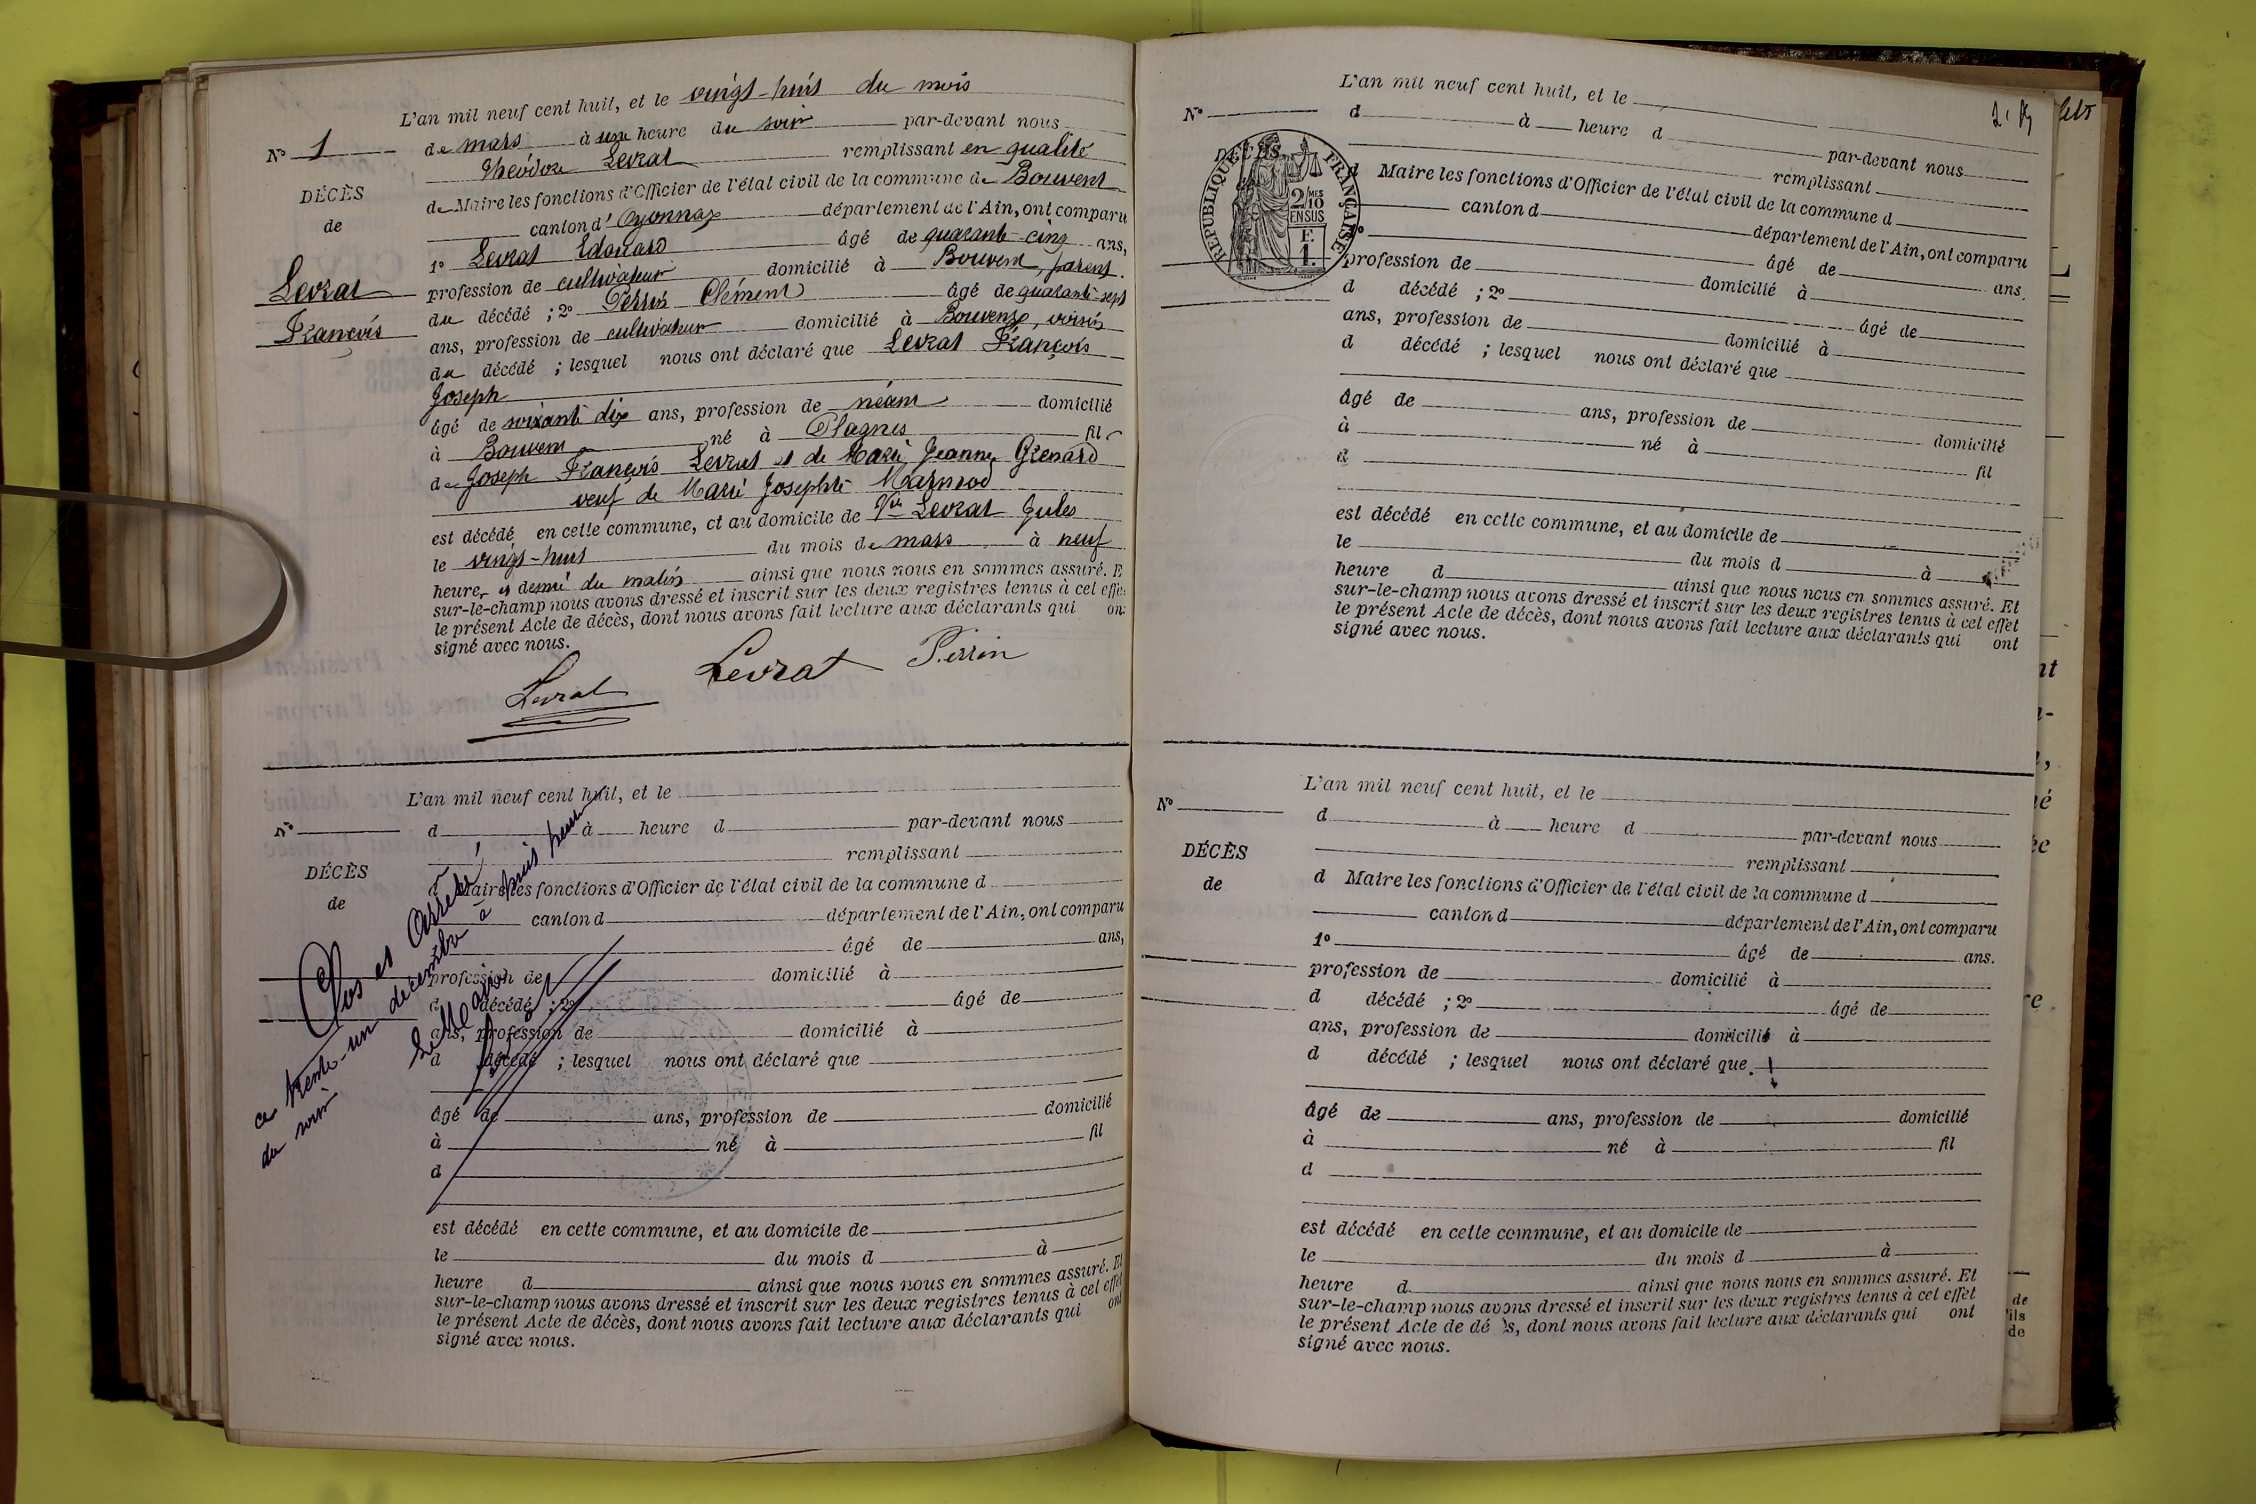 L'an mil neuf cent huit, et le vingt-huit du mois
N° 1
de mars à une heure du soir par-devant nous
Théodore Levrat remplissant en qualité
DÉCÈS
de Maire les fonctions d'Officier de l'état civil de la commune de Bouvent
de
canton d'Oyonnax département de l'Ain, ont comparu
1° Levrat Edouard âgé de quarante-cinq ans,
Levrat
profession de cultivateur domicilié à Bouvent, parent
François
du décédé ; 2° Perrin Clément âgé de quarante-sept
ans, profession de cultivateur domicilié à Bouvent, voisin
du décédé ; lesquel nous ont déclaré que Levrat François
Joseph
âgé de soixante dix ans, profession de néant domicilié
à Bouvent né à Plagnes fils
de Joseph François Levrat et de Marie Jeanne Grenard
veuf de Marie Josephte
est décédé en cette commune, et au domicile de Levrat Jules
le vingt-huit du mois de mars à neuf
heures et demie du matin ainsi que nous nous en sommes assuré. E
sur-le-champ nous avons dressé et inscrit sur les deux registres tenus à cet effet
le présent Acte de décès, dont nous avons fait lecture aux déclarants qui on
signé avec nous.
Levrat Levrat Perrin
L'an mil neuf cent huit, et le
N°
d à heure d par-devant nous
remplissant
DÉCÈS
d Maire les fonctions d'Officier de l'état civil de la commune d
de
canton d département de l'Ain, ont comparu
âgé de ans,
profession de domicilié à
d décédé ; 2° âgé de
ans, profession de domicilié à
d décédé ; lesquel nous ont déclaré que
âgé de ans, profession de domicilié
à né à fil
d
est décédé en cette commune, et au domicile de
le du mois d à
heure d ainsi que nous nous en sommes assuré. Et
sur-le-champ nous avons dressé et inscrit sur les deux registres tenus à cet effet
le présent Acte de décès, dont nous avons fait lecture aux déclarants qui ont
signé avec nous.
Clos et Arrêté
ce trente-un décembre à huit heures
du soir
Le Maire
L'an mil neuf cent huit, et le
N°
d à heure d
par-devant nous
DÉCÈS
remplissant
d Maire les fonctions d'Officier de l'état civil de la commune d
canton d département de l'Ain, ont comparu
âgé de ans.
profession de domicilié à
d décédé ; 2° âgé de
ans, profession de domicilié à
d décédé ; lesquel nous ont déclaré que
âgé de ans, profession de domicilié
à né à fil
d
est décédé en cette commune, et au domicile de
le du mois d à
heure d ainsi que nous nous en sommes assuré. Et
sur-le-champ nous avons dressé et inscrit sur les deux registres tenus à cet effet
le présent Acte de décès, dont nous avons fait lecture aux déclarants qui ont
signé avec nous.
RÉPUBLIQUE FRANÇAISE
2/10
EN SUS
E.
1.
L'an mil neuf cent huit, et le
N°
d à heure d par-devant nous
DÉCÈS
remplissant
de
d Maire les fonctions d'Officier de l'état civil de la commune d
canton d département de l'Ain, ont comparu
1° âgé de ans.
profession de domicilié à
d décédé ; 2° âgé de
ans, profession de domicilié à
d décédé ; lesquel nous ont déclaré que
âgé de ans, profession de domicilié
à né à fil
d
est décédé en cette commune, et au domicile de
le du mois d à
heure d ainsi que nous nous en sommes assuré. Et
sur-le-champ nous avons dressé et inscrit sur les deux registres tenus à cet effet
le présent Acte de dé s, dont nous avons fait lecture aux déclarants qui ont
signé avec nous.